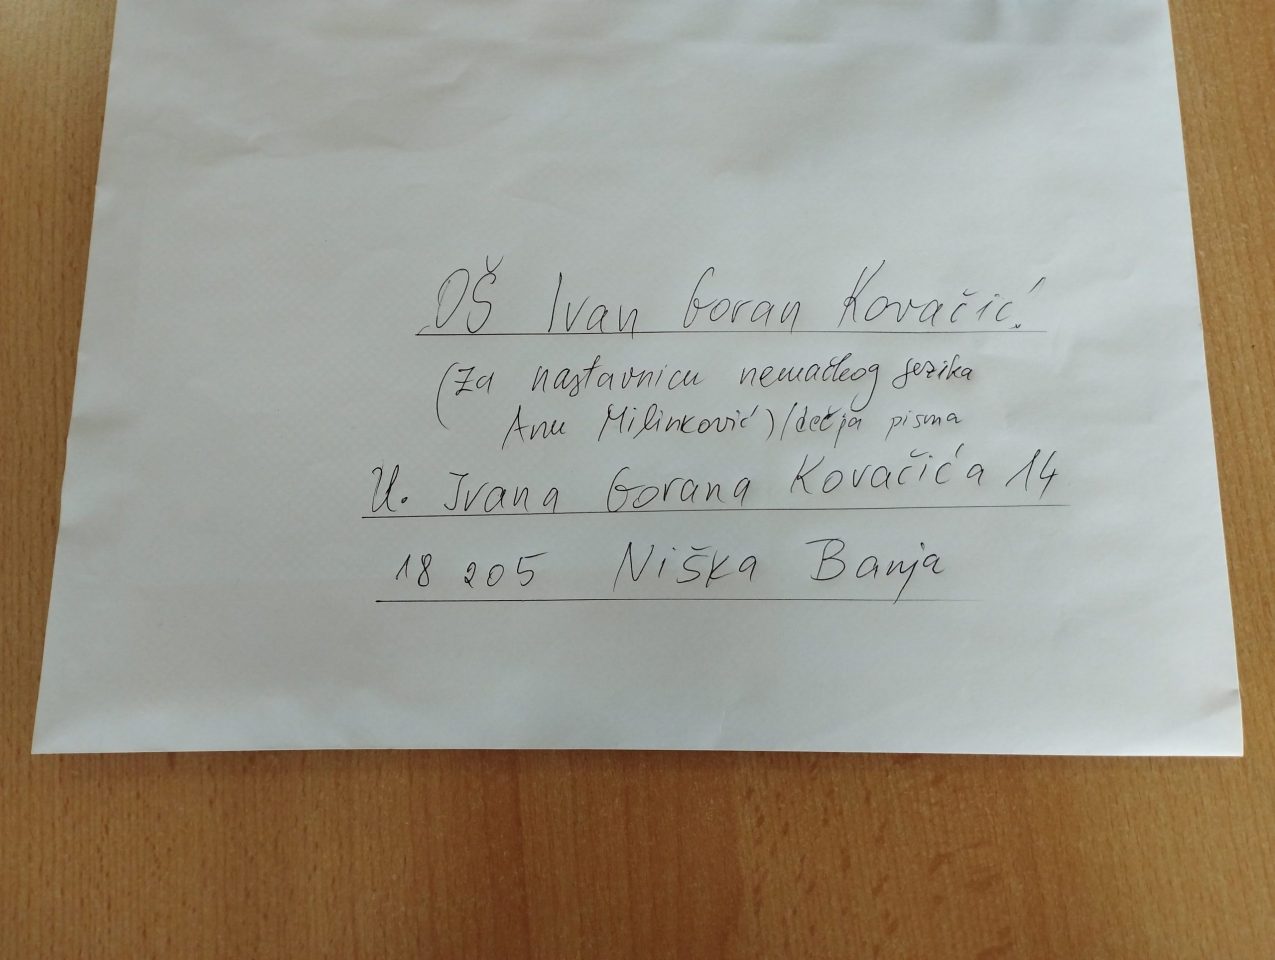 „OŠ Ivan Goran Kovačić“
(Za nastavnicu nemačkog jezika
Anu Milinković)/dečja pisma
Ul. Ivana Gorana Kovačića 14
18 205 Niška Banja